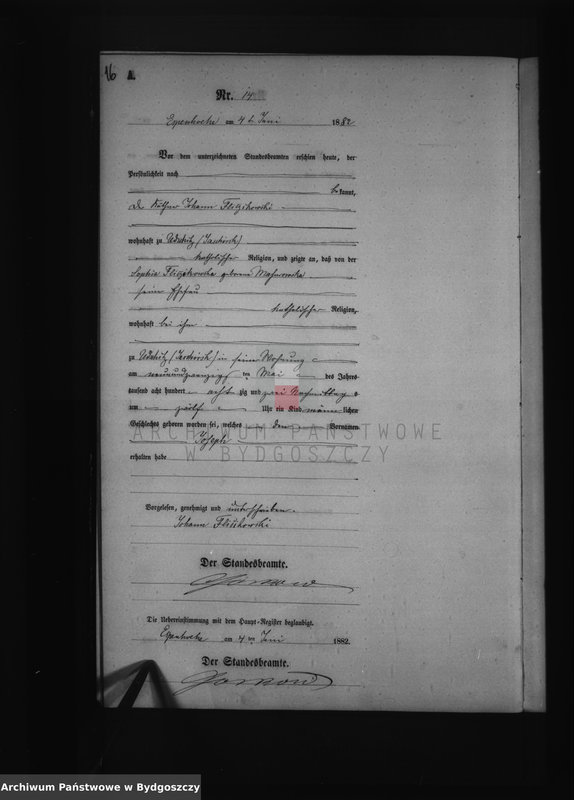 16
A.
Nr. 14
am 4 t. Juni 1882
Vor dem unterzeichneten Standesbeamten erschien heute, der
Persönlichkeit nach
bekannt,
Johann
wohnhaft zu
katholischer Religion, und zeigte an, daß von der
Sophia geborene
seiner Ehefrau
katholischer Religion,
wohnhaft bei ihm
zu in seiner Wohnung
am neunundzwanzigsten Mai des Jahres
tausend acht hundert achtzig und zwei Nachmittag
um zwölf Uhr ein Kind männlichen
Geschlechts geboren worden sei, welches den Vornamen
Joseph
erhalten habe
ARCHIWUM PAŃSTWOWE
W BYDGOSZCZY
Vorgelesen, genehmigt und unterschrieben.
Johann
Der Standesbeamte.
Die Uebereinstimmung mit dem Haupt-Register beglaubigt.
am 4 ten Juni 1882.
Der Standesbeamte.
Archiwum Państwowe w Bydgoszczy